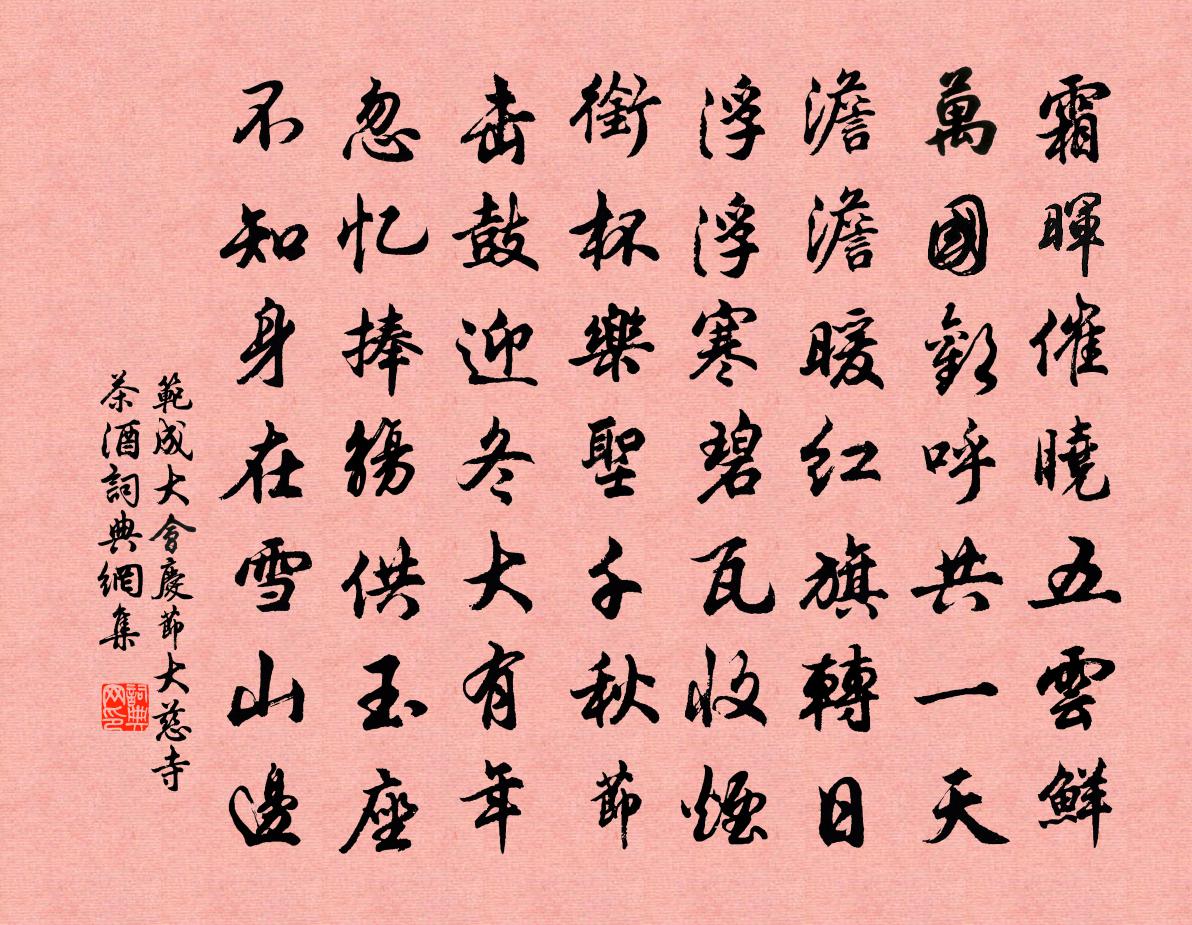 霜暉催曉五雲鮮
萬國歡呼共一天
澹澹暖紅旗轉日
浮浮寒碧瓦收煙
銜杯樂聖千秋節
击鼓迎冬大有年
忽忆捧觴供玉座
不知身在雪山邊
範成大會慶節大慈寺
茶酒詞典網集
詞典网印